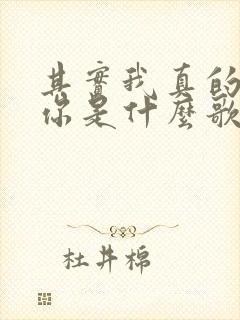 其實我真的
你是什麼歌
杜井棉